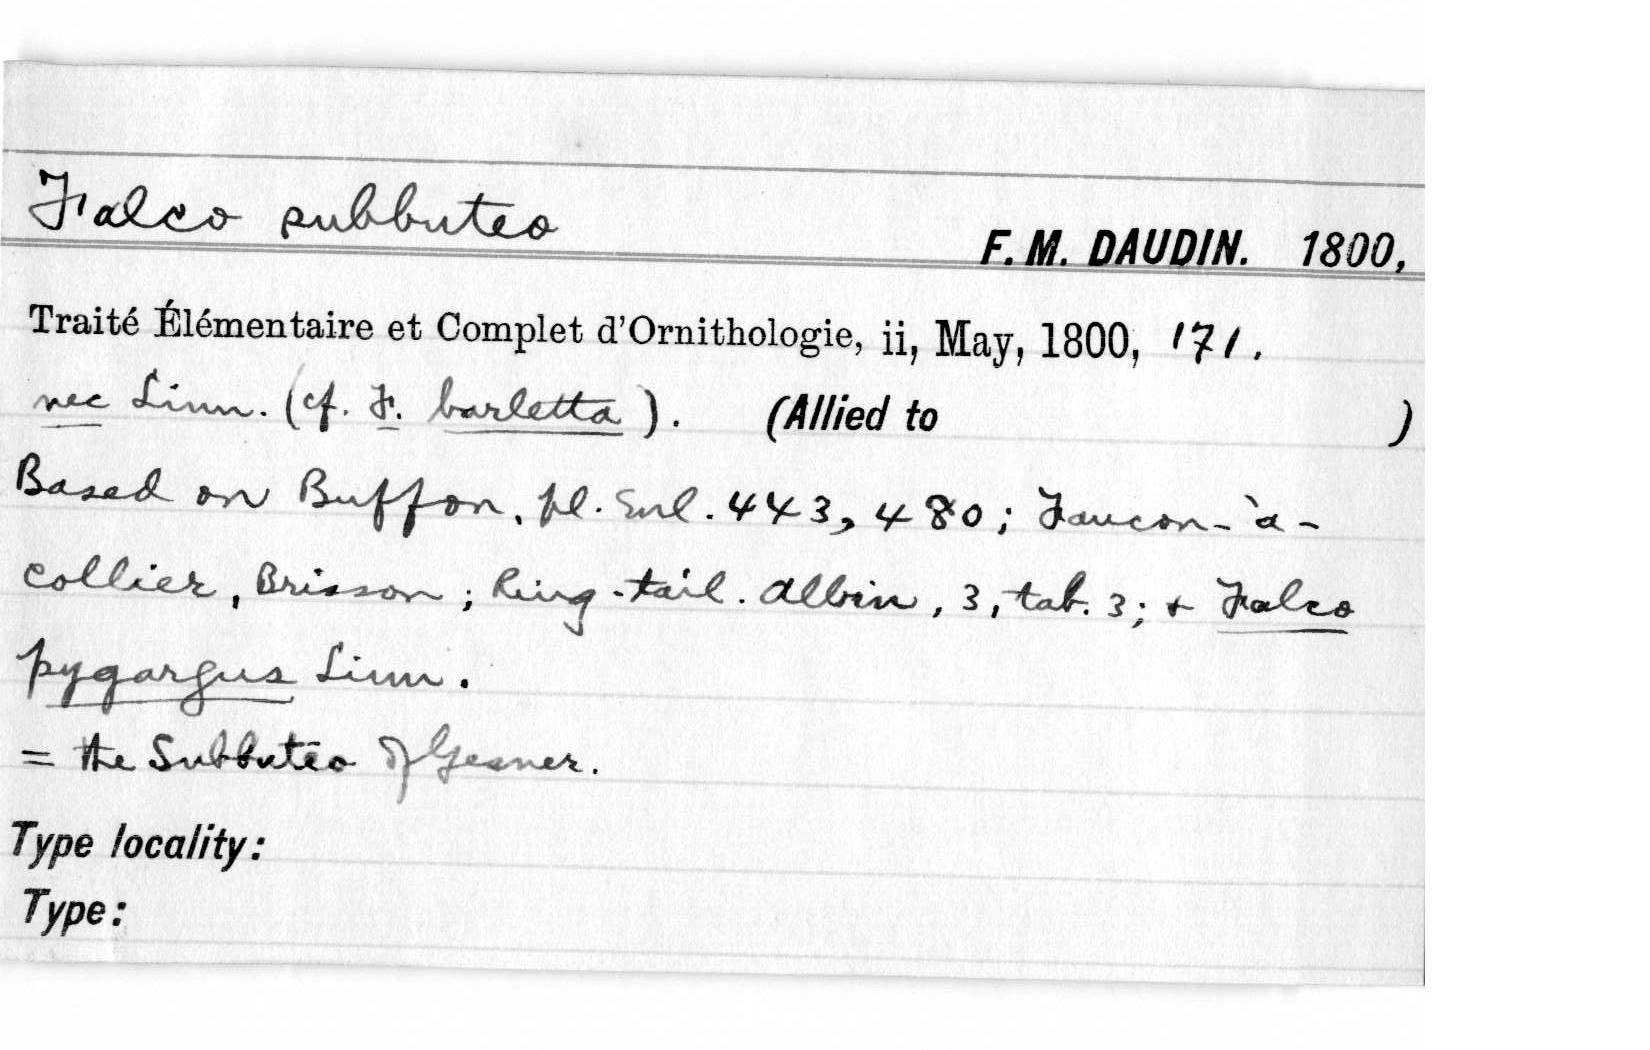 Falco subbuteo
F. M. DAUDIN. 1800,
Traité Élémentaire et Complet d'Ornithologie, ii, May, 1800, 171.
nec Linn. (cf. F. barletta). (Allied to )
Based on Buffon, pl. Enl. 443, 480; Faucon-à-
collier, Brisson; Ring-tail. Albin, 3, tab. 3; + Falco
pygargus Linn.
= the Subbuteo of Gesner.
Type locality:
Type: